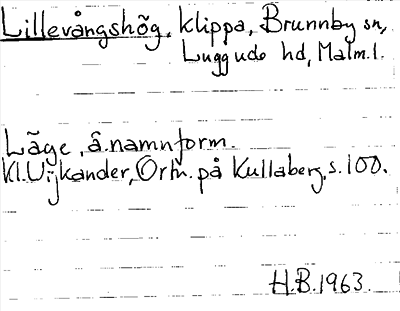 Lillevångshög, klippa, Brunnby sn,
Luggude hd, Malm.l.
Läge, ä.namnform.
Kl.Uijkander, Ortn. på Kullaberg, s.100.
H.B.1963.